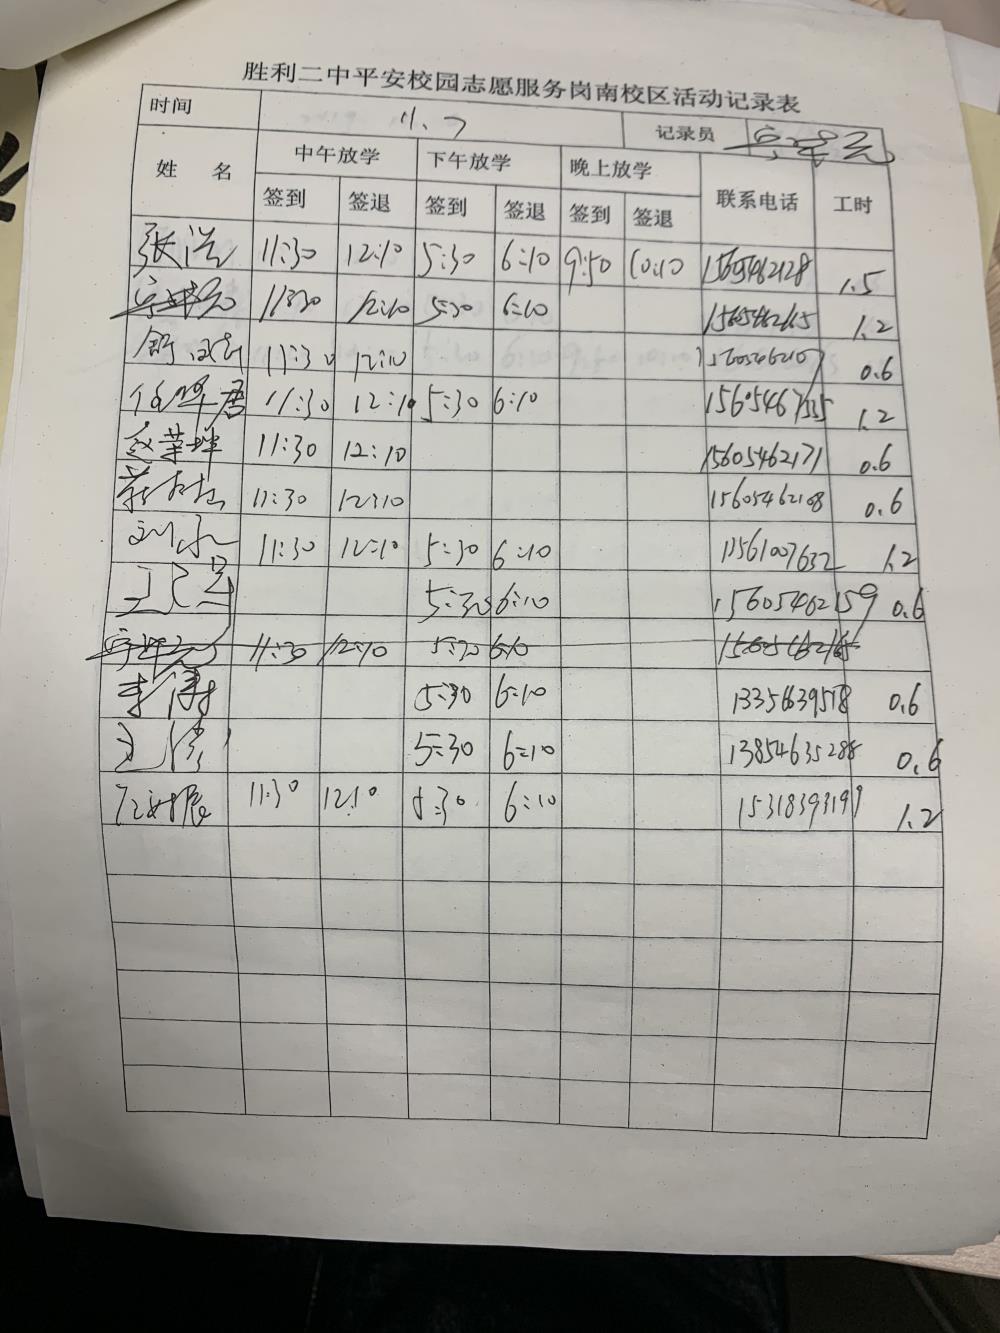 胜利二中平安校园志愿服务岗南校区活动记录表
时间 11.7 记录员
姓 名 中午放学 下午放学 晚上放学 联系电话 工时
签到 签退 签到 签退 签到 签退
张浩 11:30 12:10 5:30 6:10 9:50 10:10 15605462128 1.5
11:30 12:10 5:30 6:10 15605462165 1.2
11:30 12:10 0.6
11:30 12:10 5:30 6:10 1.2
赵荣坤 11:30 12:10 15605462171 0.6
11:30 12:10 15605462108 0.6
刘永 11:30 12:10 5:30 6:10 13561007632 1.2
5:30 6:10 15605462159 0.6
11:30 12:10 5:30 6:10 15605462165
李涛 5:30 6:10 0.6
5:30 6:10 13854635288 0.6
11:30 12:10 5:30 6:10 15318393199 1.2